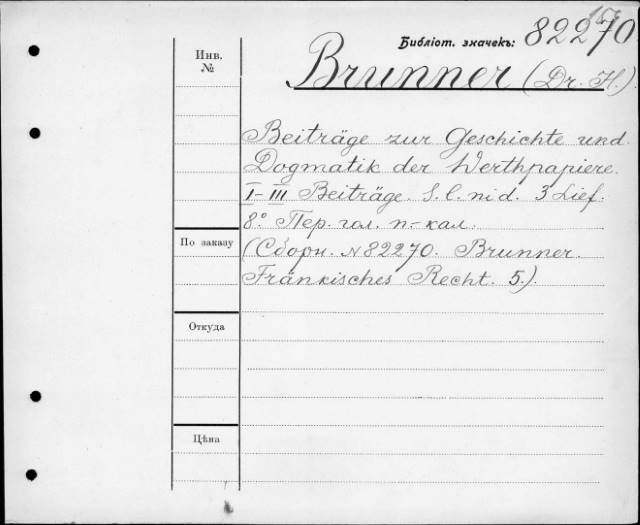 Библіот. значекъ: 82270
Инв.
№
Brunner (Dr. H.)
Beiträge zur Geschichte und
Dogmatik der Werthpapiere.
I-III Beiträge. S. l. ni d. 3 Lief.
8.° Пер. гол. п.-кал.
По заказу
(Сборн. №82270. Brunner.
Fränkisches Recht. 5.)
Откуда
Цѣна